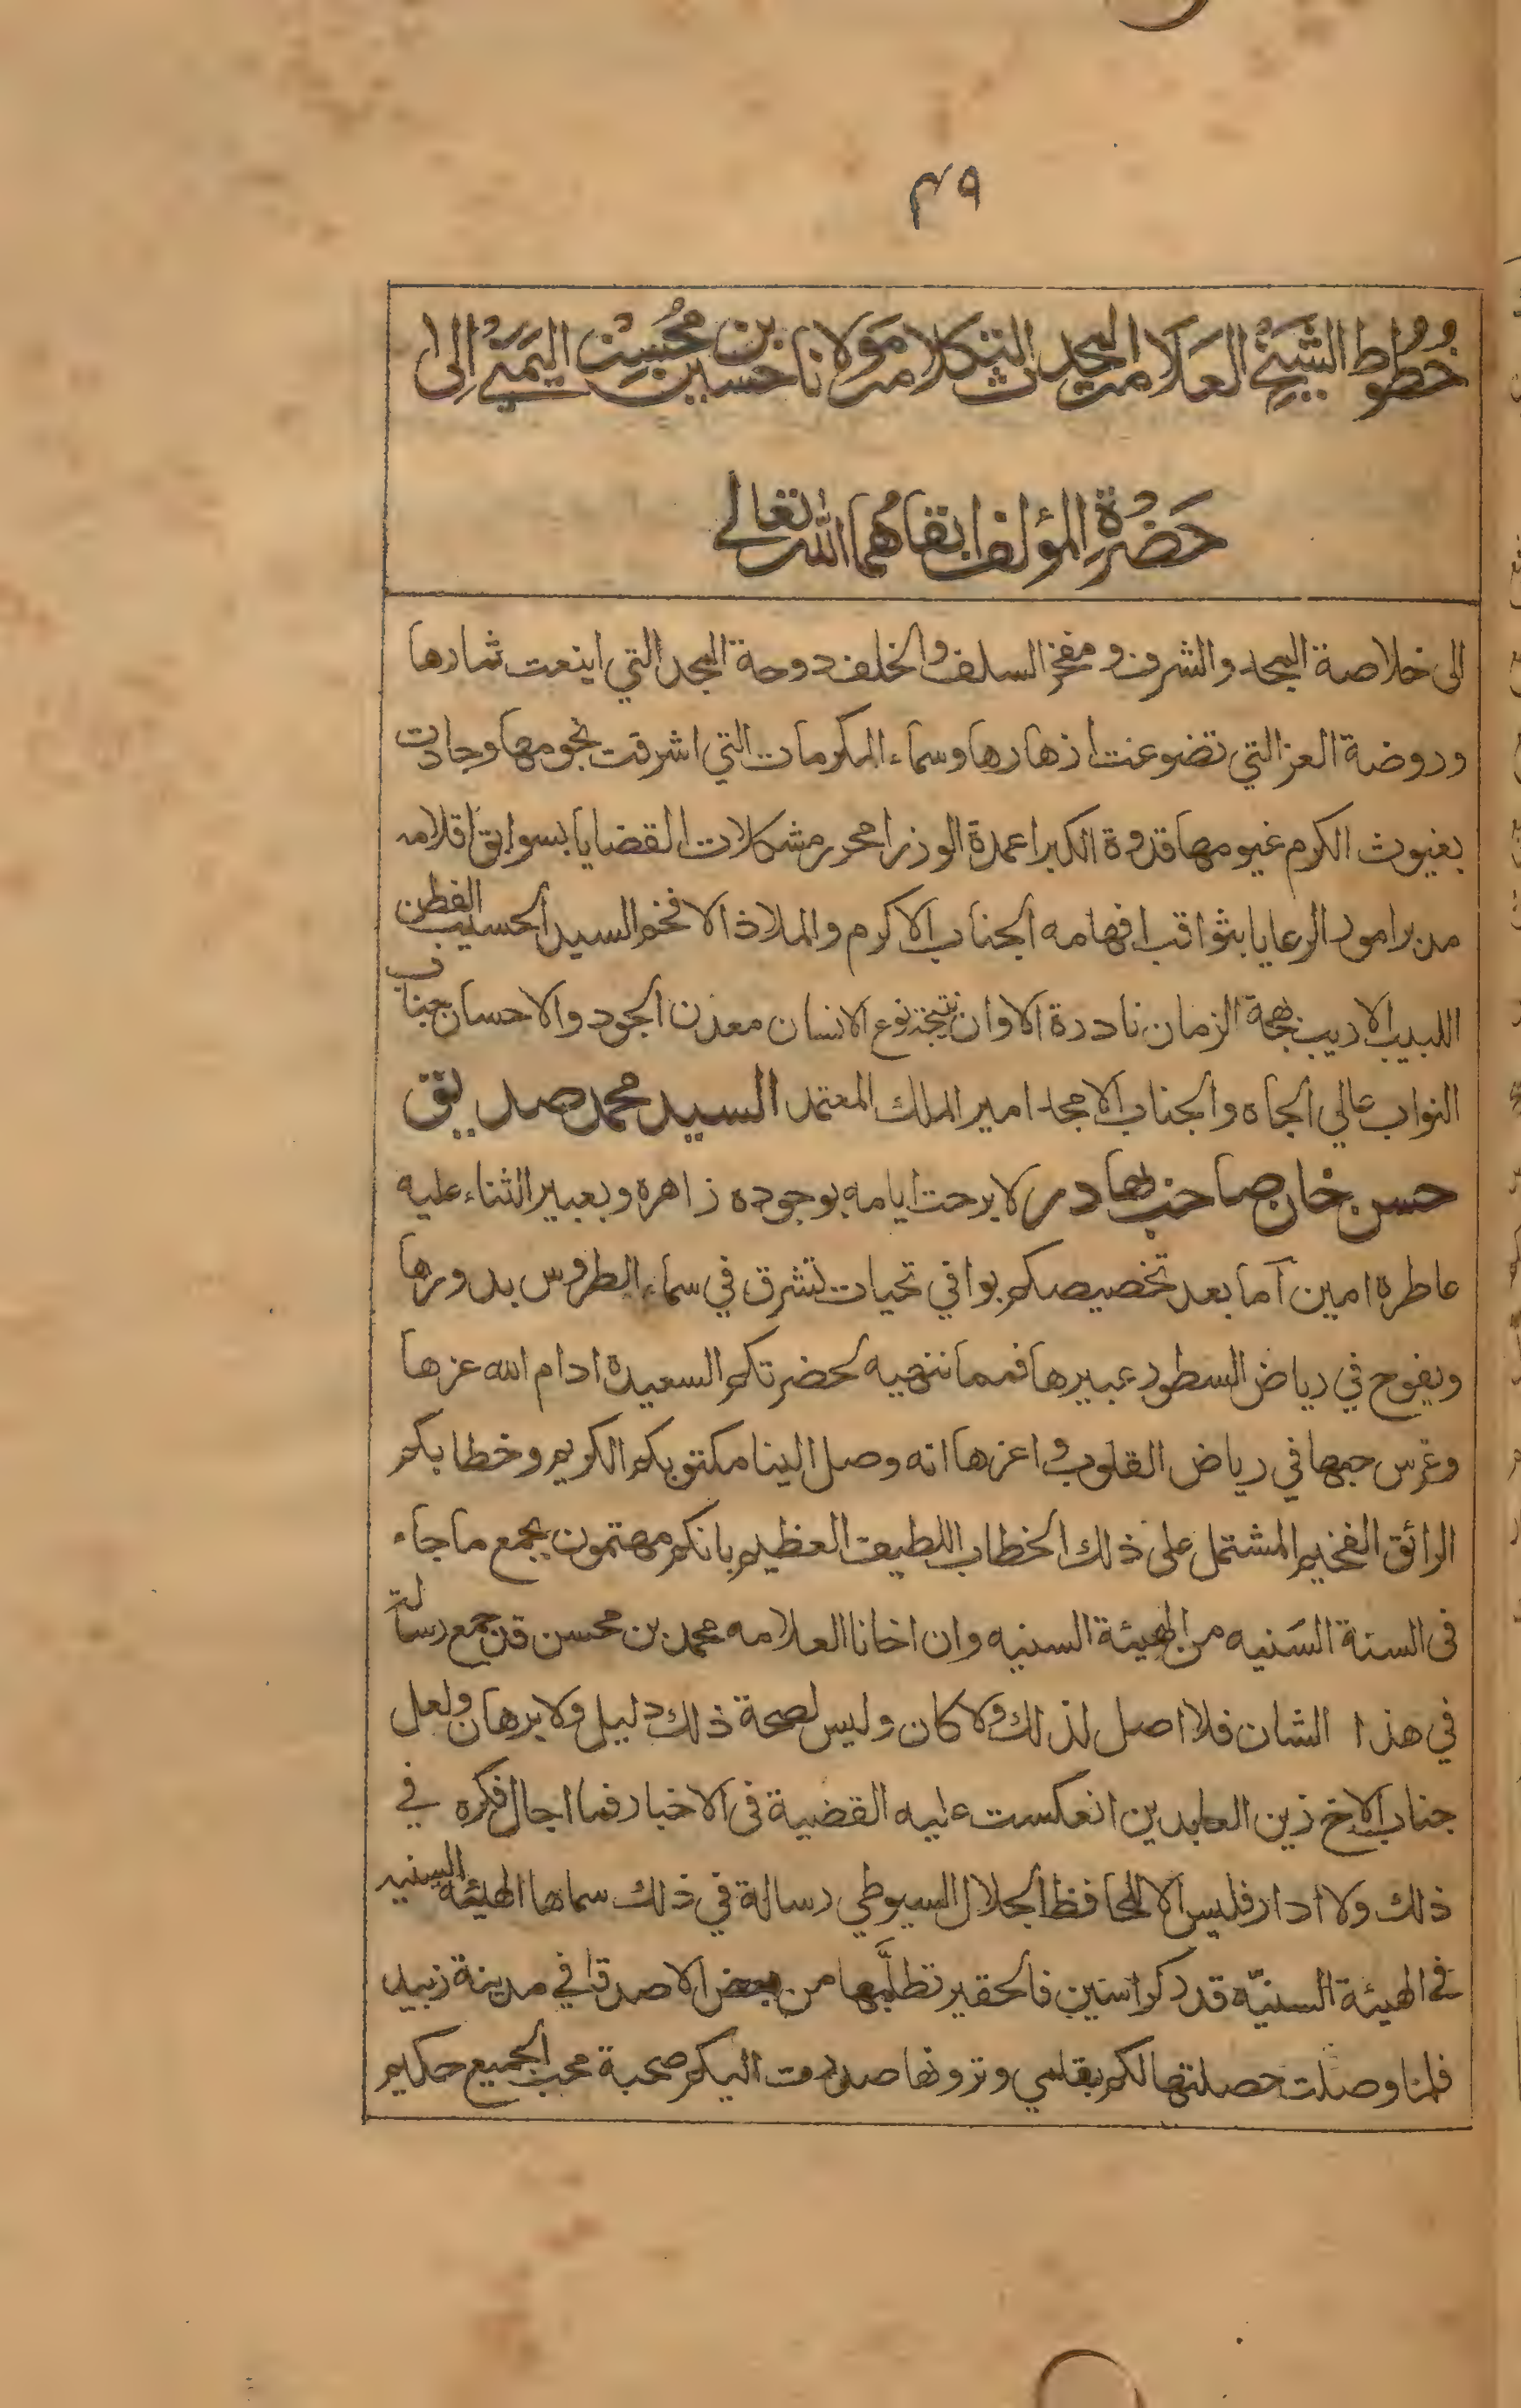 ٤٩
خُطُوط الشَّيْخِ العَلَّامة المحدث المتكلم مَوْلانا حسين بن مُحْسِن اليَمَنِي اِلى
حَضْرَةِ المؤلف ابقاهُما الله تعالى
الى خلاصة المجد والشرف ومفخر السلف والخلف دوحة المجد التي اينعت ثمارها
وروضة العز التي تضوعت ازهارها وسماء المكرمات التي اشرقت نجومها وجادت
بغيوث الكرم غيومها قدوة الكبرا عمدة الوزرا محرر مشكلات القضايا بسوابق اقلامه
مدبر امور الرعايا بثواقب افهامه الجناب الاكرم والملاذ الافخم السيد الحسيب الفطن
اللبيب الاديب بهجة الزمان نادرة الاوان نتيجة نوع الانسان معدن الجود والاحسان جناب
النواب عالي الجاه والجناب الامجد امير الملك المعتمد السيد محمد صديق
حسن خان صاحب بهادر لا برحت ايامه بوجوده زاهره وبعبير الثناء عليه
عاطره امين آما بعد تخصيصكم بوافي تحيات تشرق في سماء الطروس بدورها
ويفوح في رياض السطور عبيرها فمما ننهيه لحضرتكم السعيدة ادام الله عزها
وغرس حبها في رياض القلوب واعزها انه وصل الينا مكتوبكم الكريم وخطابكم
الرائق الفخيم المشتمل على ذلك الخطاب اللطيف العظيم بانكم مهتمون بجمع ما جاء
فى السنة السَنيه من الهيئة السنيه وان اخانا العلامه محمد بن محسن قد جمع رسالة
في هذا الشان فلا اصل لذلك ولا كان وليس لصحة ذلك دليل ولا برهان ولعل
جناب الاخ زين العابدين انعكست عليه القضية فى الاخبار فما اجال فكره في
ذلك ولا ادار فليس الا للحافظ الجلال السيوطي رسالة في ذلك سماها الهيئة السنيه
في الهيئة السنيّه قدر كراسين فالحقير تطلَّبها من بعض الاصدقا في مدينة زبيد
فلما وصلت حصلتها لكم بقلمي وترونها صدرت اليكم صحبة محب الجميع حكيم